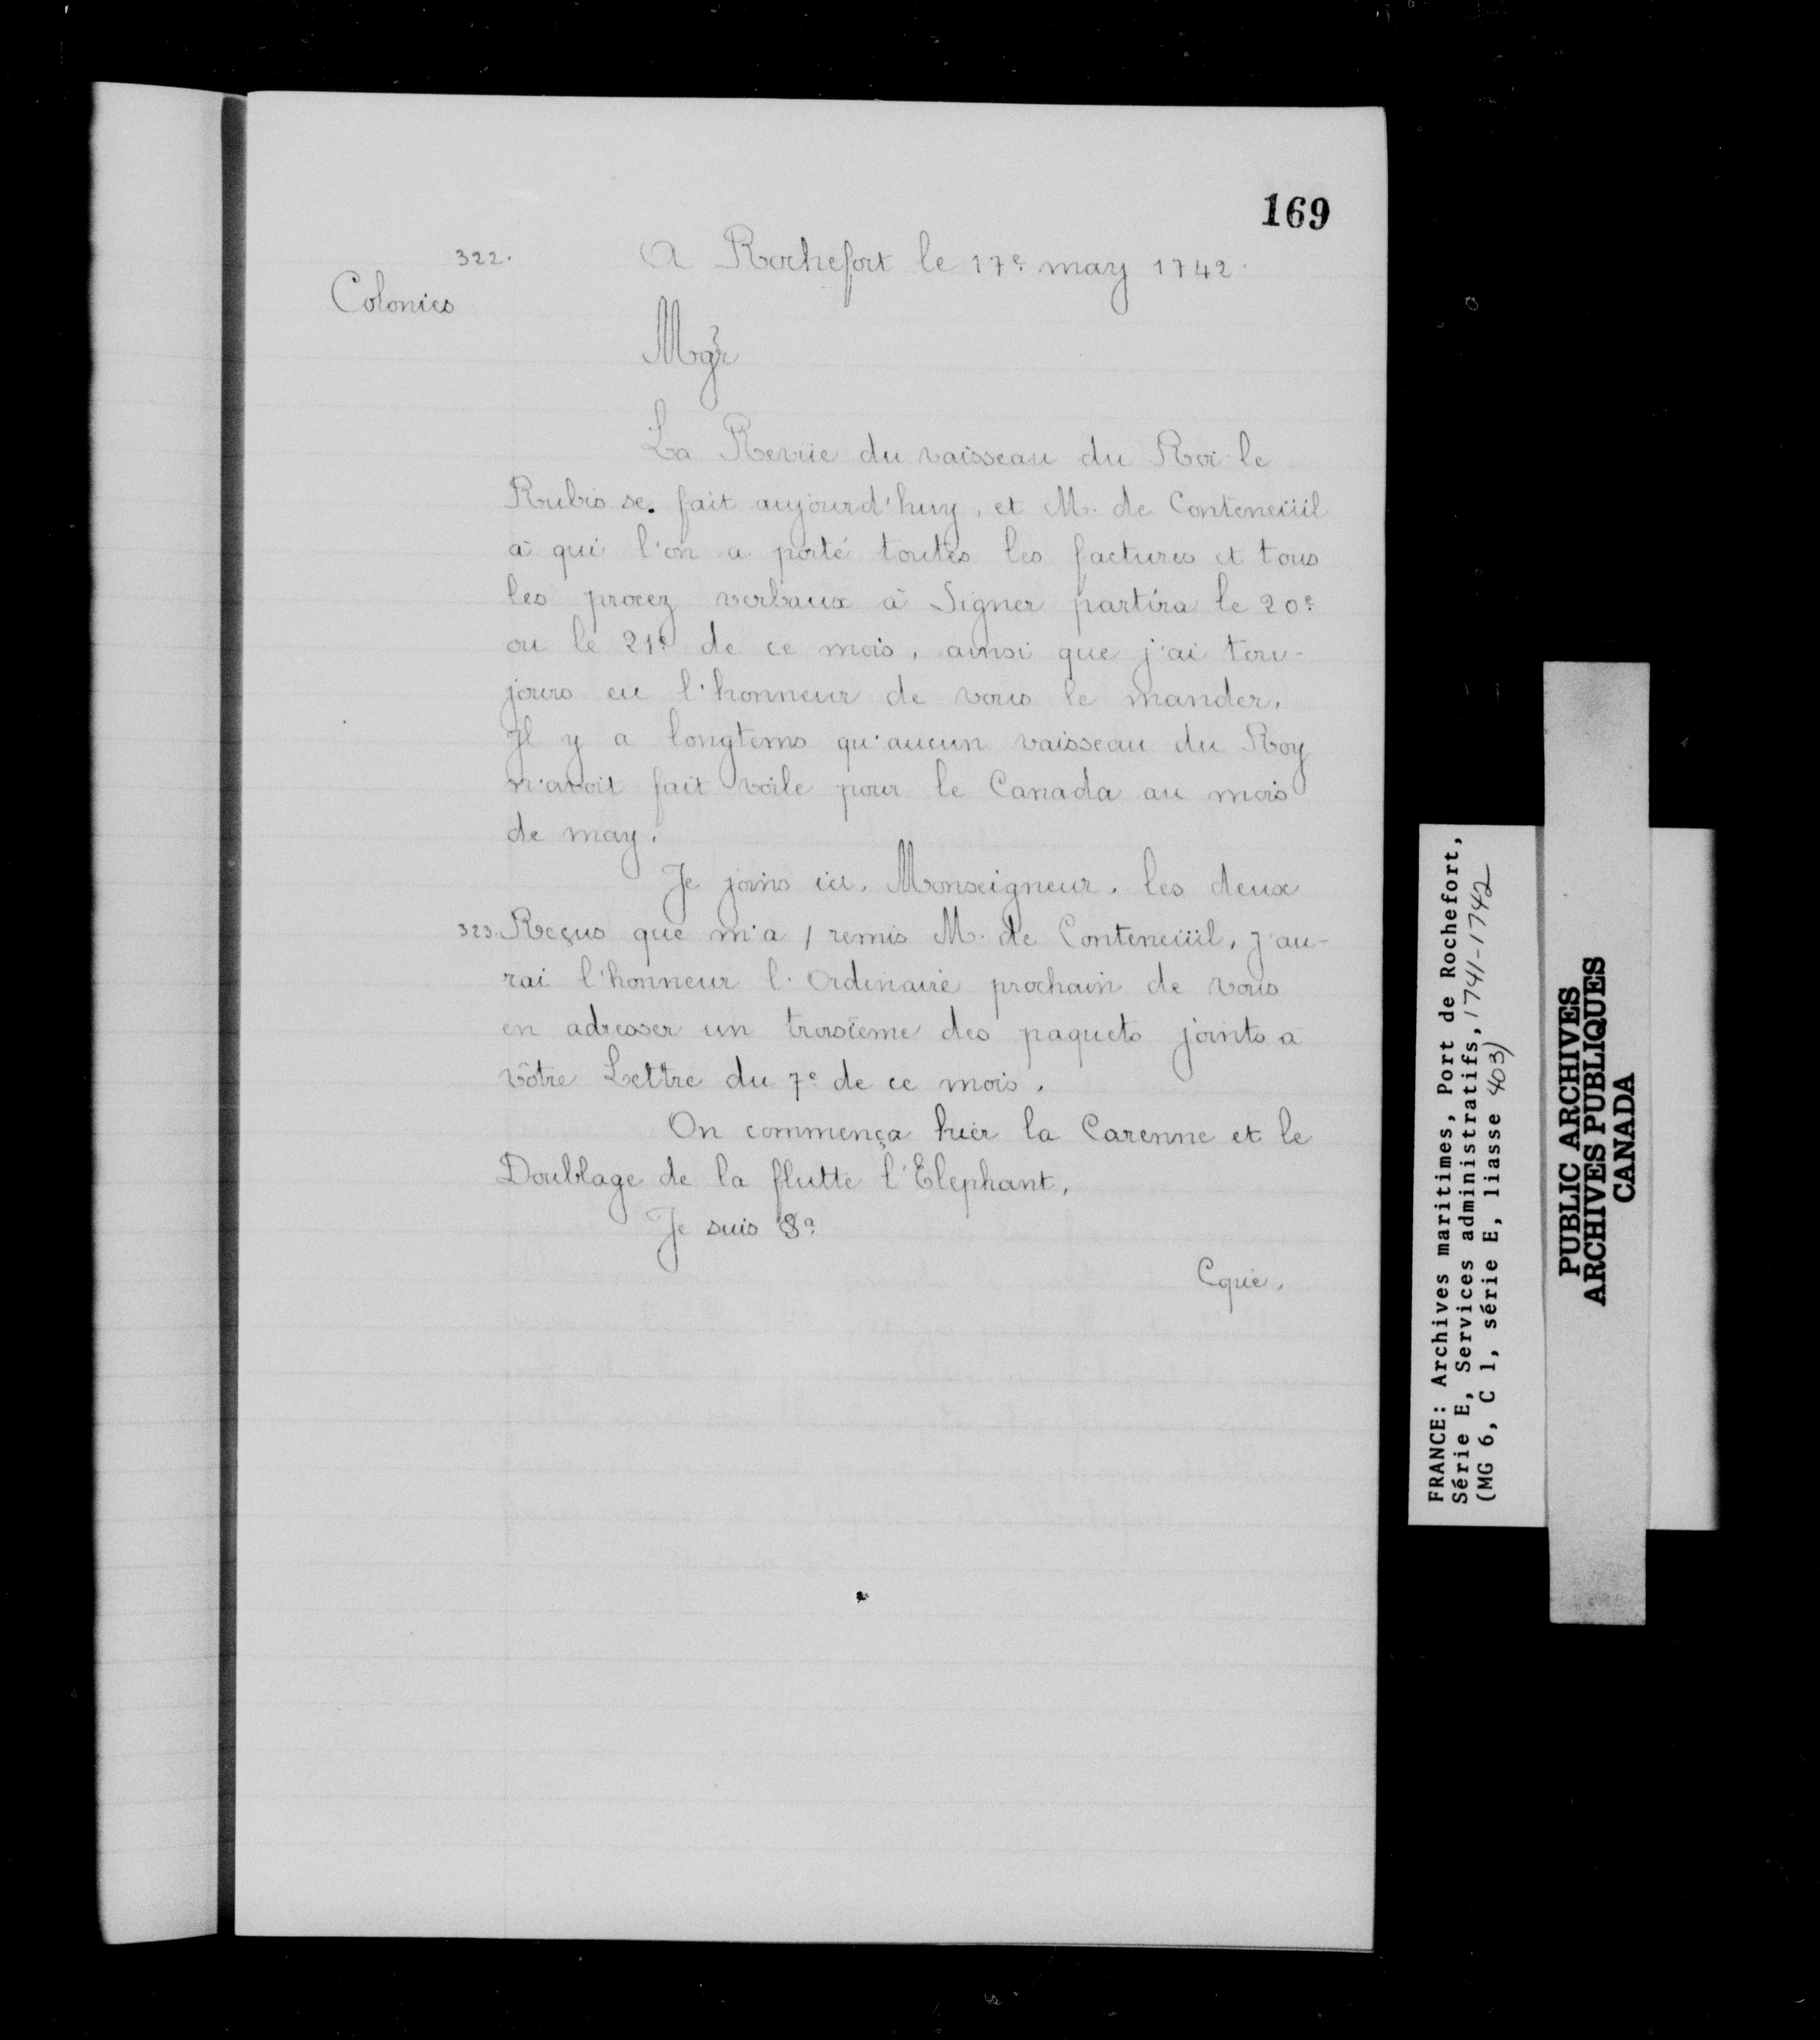 169
322. A Rochefort le 17e may 1742.
Colonies
Mgr
La Revüe du vaisseau du Roi le
Rubis se. fait aujourd'huy, et M. de Conteneüil
à qui l'on a porté toutes les factures et tous
les procez verbaux à Signer partira le 20e
ou le 21e de ce mois, ainsi que j'ai tou-
jours eu l'honneur de vous le mander.
Il y a longtems qu'aucun vaisseau du Roy
n'avoit fait voile pour le Canada au mois
de may.
Je joins ici, Monseigneur, les deux
323. Reçus que m'a / remis M. de Conteneüil, j'au-
rai l'honneur l'Ordinaire prochain de vous
en adresser un troisieme des paquets joints a
vôtre Lettre du 7e de ce mois.
On commença hier la Carenne et le
Doublage de la flutte l'Elephant.
Je suis &a
Copie.
FRANCE: Archives maritimes, Port de Rochefort,
Série E, Services administratifs, 1741-1742
(MG 6, C 1, série E, liasse 403)
PUBLIC ARCHIVES
ARCHIVES PUBLIQUES
CANADA